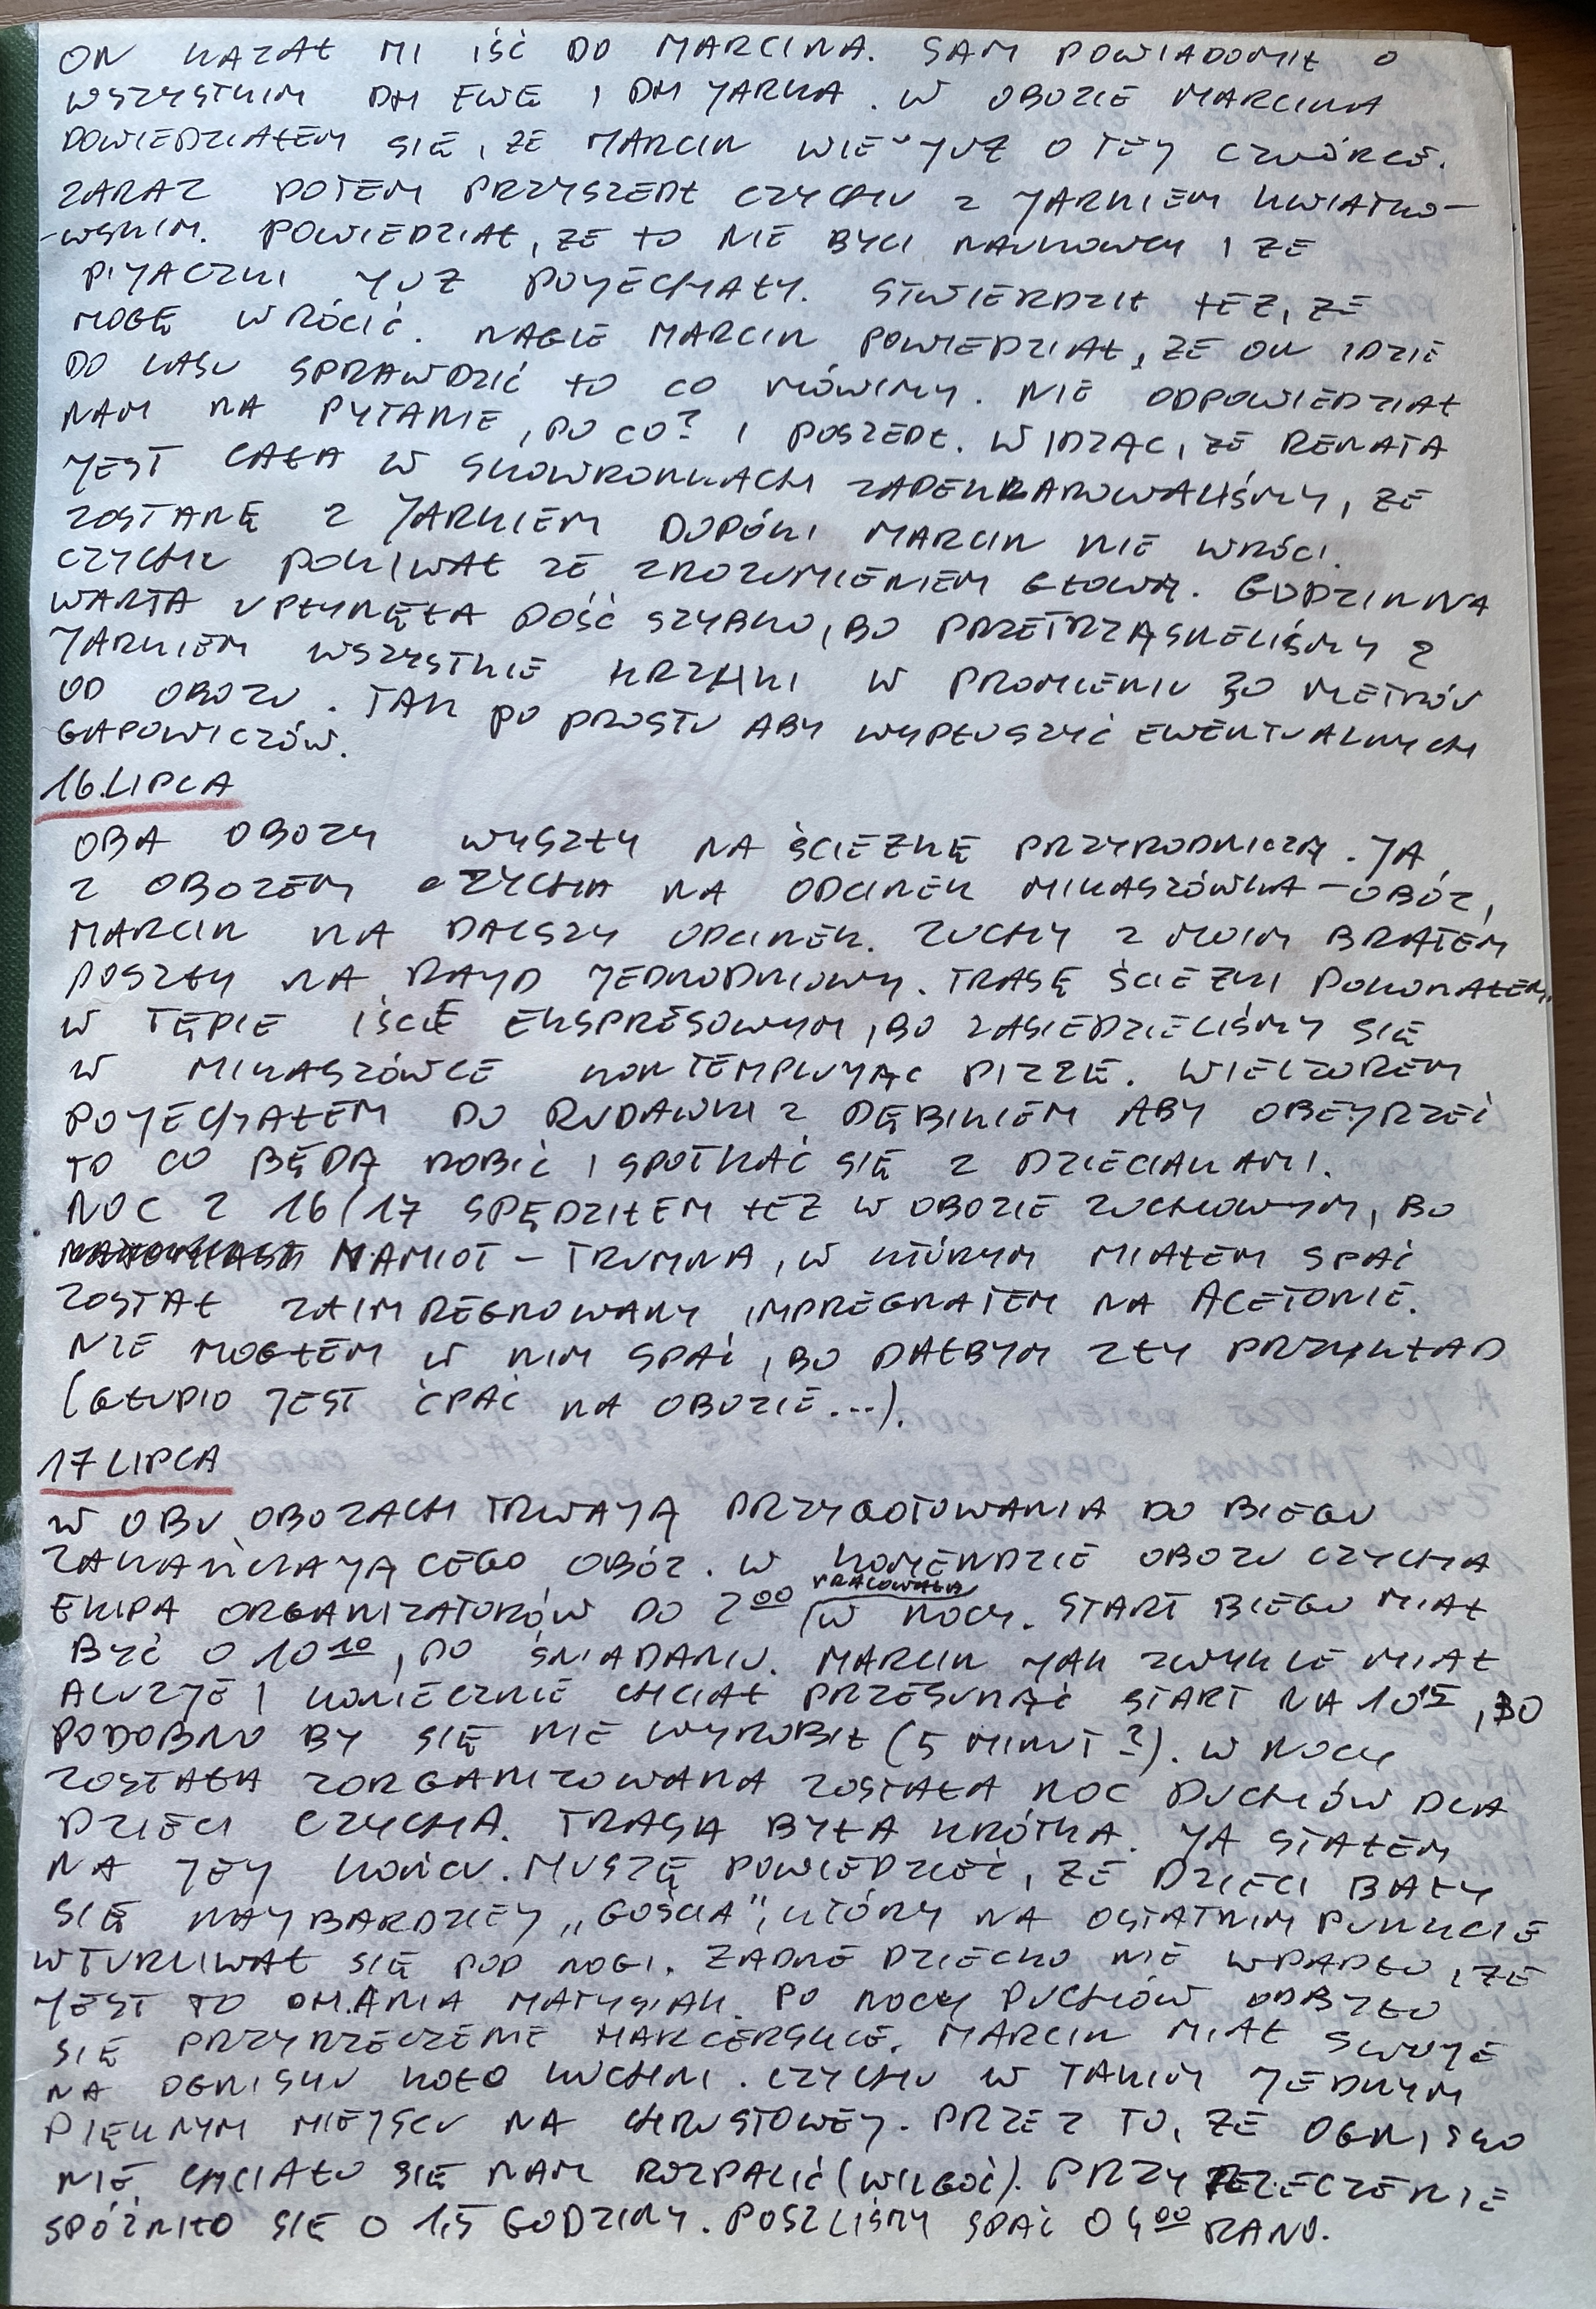 ON KAZAŁ MI IŚĆ DO MARCINA. SAM POWIADOMIŁ O
WSZYSTKIM DH EWĘ I DH JARKA. W OBOZIE MARCINA
DOWIEDZIAŁEM SIĘ, ŻE MARCIN WIE JUŻ O TEJ CZWÓRCE.
ZARAZ POTEM PRZYSZEDŁ CZYCHU Z JARKIEM KWIATKO-
-WSKIM. POWIEDZIAŁ, ŻE TO NIE BYLI NAUKOWCY I ŻE
PIJACZKI JUŻ POJECHAŁY. STWIERDZIŁ TEŻ, ŻE
MOGĘ WRÓCIĆ. NAGLE MARCIN POWIEDZIAŁ, ŻE ON IDZIE
DO LASU SPRAWDZIĆ TO CO MÓWIMY. NIE ODPOWIEDZIAŁ
NAM NA PYTANIE, PO CO? I POSZEDŁ. WIDZĄC, ŻE RENATA
JEST CAŁA W SKOWRONKACH ZADEKLAROWALIŚMY, ŻE
ZOSTANĘ Z JARKIEM DOPÓKI MARCIN NIE WRÓCI.
CZYCHU POKIWAŁ ZE ZROZUMIENIEM GŁOWĄ. GODZINNA
WARTA UPŁYNĘŁA DOŚĆ SZYBKO, BO PRZETRZĄSNĘLIŚMY Z
JARKIEM WSZYSTKIE KRZAKI W PROMIENIU 30 METRÓW
OD OBOZU. TAK PO PROSTU ABY WYPŁOSZYĆ EWENTUALNYCH
GAPOWICZÓW.
16.LIPCA
OBA OBOZY WYSZŁY NA ŚCIEŻKĘ PRZYRODNICZĄ. JA
Z OBOZEM CZYCHA NA ODCINEK MIKASZÓWKA - OBÓZ,
MARCIN NA DALSZY ODCINEK. ZUCHY Z MOIM BRATEM
POSZŁY NA RAJD JEDNODNIOWY. TRASĘ ŚCIEŻKI POKONAŁEM
W TĘPIE IŚCIE EKSPRESOWYM, BO ZASIEDZIELIŚMY SIĘ
W MIKASZÓWCE KONTEMPLUJĄC PIZZĘ. WIECZOREM
POJECHAŁEM DO RUDAWKI Z DĘBIKIEM ABY OBEJRZEĆ
TO CO BĘDĄ ROBIĆ I SPOTKAĆ SIĘ Z DZIECIAKAMI.
NOC Z 16/17 SPĘDZIŁEM TEŻ W OBOZIE ZUCHOWYM, BO
NAMIOT - TRUMNA, W KTÓRYM MIAŁEM SPAĆ
ZOSTAŁ ZAIMPREGNOWANY IMPREGNATEM NA ACETONIE.
NIE MOGŁEM W NIM SPAĆ, BO DAŁBYM ZŁY PRZYKŁAD
(GŁUPIO JEST ĆPAĆ NA OBOZIE...).
17 LIPCA
W OBU OBOZACH TRWAJĄ PRZYGOTOWANIA DO BIEGU
ZAKAŃCZAJĄCEGO OBÓZ. W KOMENDZIE OBOZU CZYCHA
EKIPA ORGANIZATORÓW DO 2⁰⁰ PRACOWAŁA W NOCY. START BIEGU MIAŁ
BYĆ O 10¹⁰, PO ŚNIADANIU. MARCIN JAK ZWYKLE MIAŁ
ALUZJE I KONIECZNIE CHCIAŁ PRZESUNĄĆ START NA 10¹⁵, BO
PODOBNO BY SIĘ NIE WYROBIŁ (5 MINUT?). W NOCY
ZOSTAŁA ZORGANIZOWANA ZOSTAŁA NOC DUCHÓW DLA
DZIECI CZYCHA. TRASA BYŁA KRÓTKA. JA STAŁEM
NA JEJ KOŃCU. MUSZĘ POWIEDZIEĆ, ŻE DZIECI BAŁY
SIĘ NAJBARDZIEJ „GOŚCIA”, KTÓRY NA OSTATNIM PUNKCIE
WTURLIWAŁ SIĘ POD NOGI. ŻADNE DZIECKO NIE WPADŁO, ŻE
JEST TO DH. ANIA MATYSIAK. PO NOCY DUCHÓW ODBYŁO
SIĘ PRZYRZECZENIE HARCERSKIE. MARCIN MIAŁ SWOJE
NA OGNISKU KOŁO KUCHNI. CZYCHU W TAKIM JEDNYM
PIĘKNYM MIEJSCU NA CHRUSTOWEJ. PRZEZ TO, ŻE OGNISKO
NIE CHCIAŁO SIĘ NAM ROZPALIĆ (WILGOĆ). PRZYRZECZENIE
SPÓŹNIŁO SIĘ O 1,5 GODZINY. POSZLIŚMY SPAĆ O 4⁰⁰ RANO.